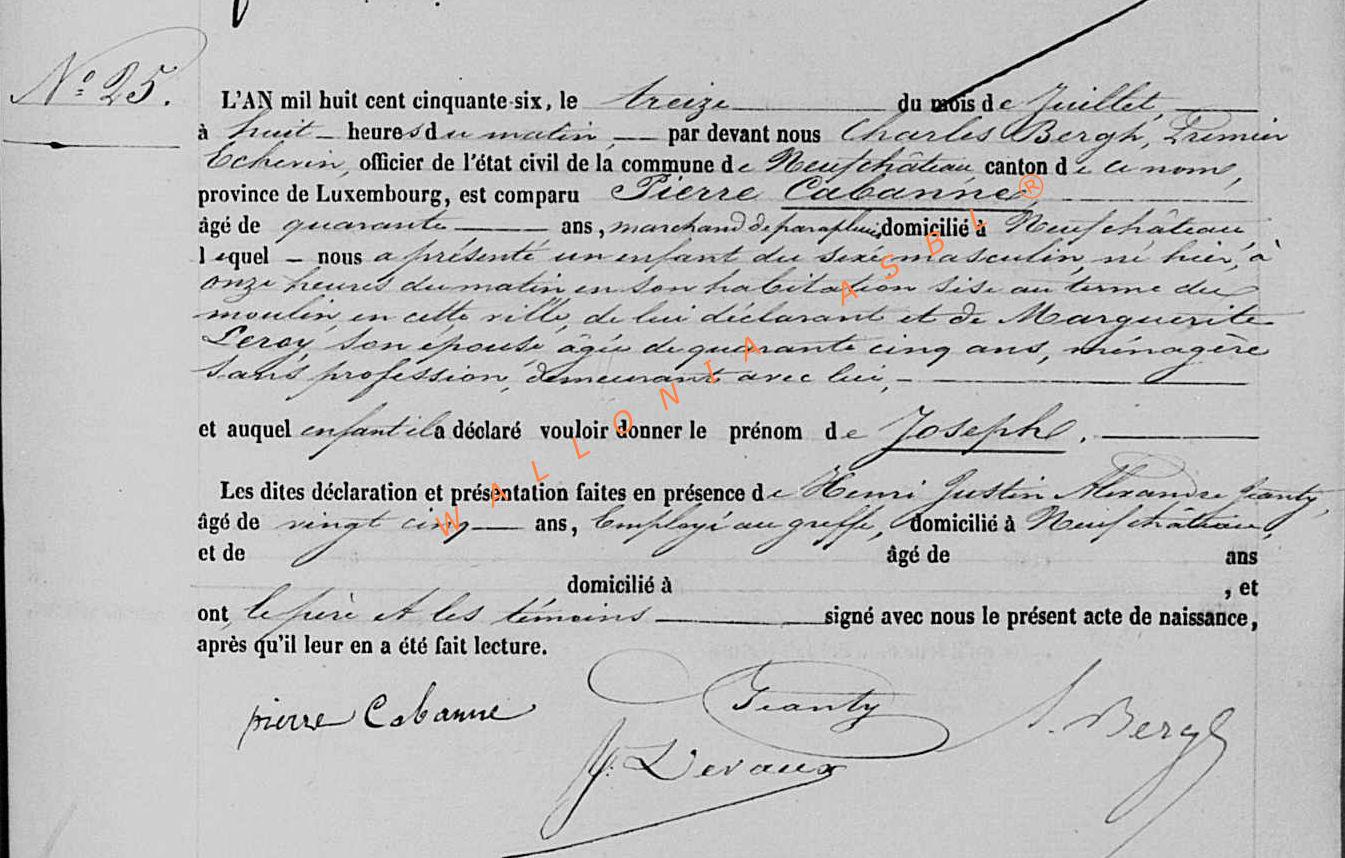 N° 25.
L'AN mil huit cent cinquante-six, le treize du mois de Juillet,
à huit heures du matin, par devant nous Charles Bergh, Premier
Echevin, officier de l'état civil de la commune de Neufchâteau, canton de ce nom,
province de Luxembourg, est comparu Pierre Cabanne,
âgé de quarante ans, marchand de parapluie, domicilié à Neufchâteau,
lequel nous a présenté un enfant du sexe masculin, né hier, à
onze heures du matin en son habitation sise au terme du
moulin, en cette ville, de lui déclarant et de Marguerite
Leroy, son épouse âgée de quarante cinq ans, ménagère
sans profession, demeurant avec lui,
et auquel enfant il a déclaré vouloir donner le prénom de Joseph.
Les dites déclaration et présentation faites en présence de Henri Justin Alexandre Jeanty,
âgé de vingt cinq ans, Employé au greffe, domicilié à Neufchâteau,
et de âgé de ans
domicilié à , et
ont, le père et les témoins signé avec nous le présent acte de naissance,
après qu'il leur en a été fait lecture.
pierre Cabanne Jeanty Bergh
Devaux
WALLONIA ASBL ®